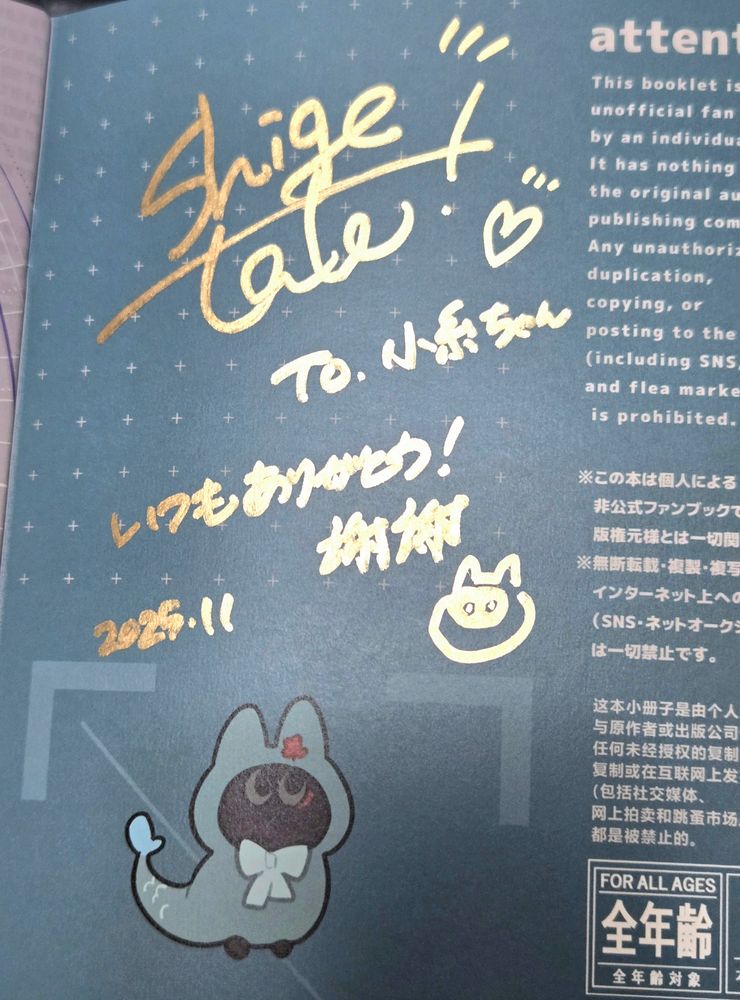 Shige
tate!
To. 小糸ちゃん
いつもありがとう!
謝謝
2025.11
attent
This booklet is
unofficial fan
by an individua
It has nothing
the original au
publishing com
Any unauthoriz
duplication,
copying, or
posting to the
(including SNS,
and flea marke
is prohibited.
※この本は個人による
非公式ファンブックで
版権元様とは一切関
※無断転載・複製・複写
インターネット上への
(SNS・ネットオークシ
は一切禁止です。
这本小册子是由个人
与原作者或出版公司
任何未经授权的复制
复制或在互联网上发
(包括社交媒体、
网上拍卖和跳蚤市场
都是被禁止的。
FOR ALL AGES
全年齢
全年齢対象